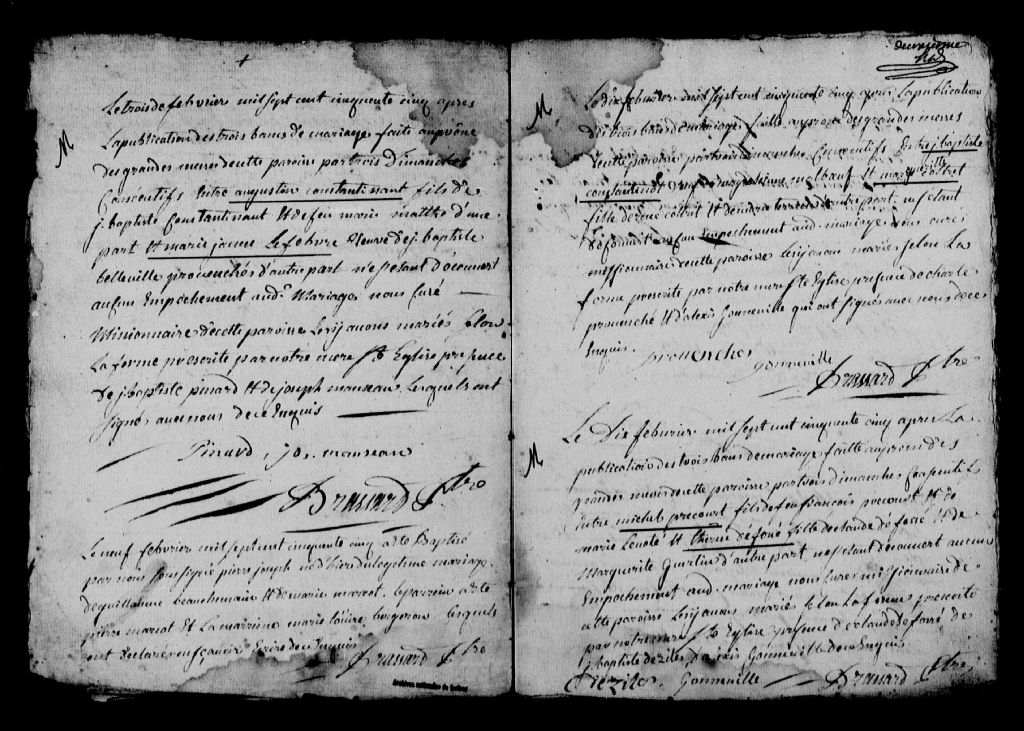 M
Le trois de febvrier mil sept cent cinquente cinq apres
La publication des trois bans de mariage faite au prône
des grandes messes de cette paroisse par trois Dimanches
Consecutifs Entre augustin constantinant fils de
j. baptiste Constantinant Et de feu marie mattte d'une
part Et marie jeanne Lefebvre veuve de j. baptiste
belleville provenchés d'autre part ne s'estant découvert
aucun Empechement aud. Mariage nous Curé
Missionnaire de cette paroisse Les ij avons mariés selon
La forme prescrite par notre mere Ste Eglise presence
de j. baptiste pinard Et de joseph manseau Lesquels ont
signé avec nous de ce Enquis
Pinard jos. manseau
Brassard Ptre
Le neuf febvrier mil sept cent cinquente cinq a été Baptisé
par nous soussigné pierre joseph né d'hier du legitime mariage
de guillaume beauchemain Et de marie marcot. le parrein a été
pierre marcot Et La marrienne marie louise bergeron lesquels
ont declaré ne sçavoir Ecrire de ce Enquis
Brassard Ptre
Archives nationales du Québec
deuxieme
M
Le dix febvrier mil sept cent cinquente cinq apres La publication
des trois bans de mariage faitte au prone des grandes messes
de cette paroisse par trois dimanches Consecutifs Entre j. baptiste
constantinant Et marguerite Cottret
fille de rené cottret Et de d'autre part, ne s'estant
découvert aucun Empechement aud. mariage nous curé
missionnaire de cette paroisse Les ij avons mariés selon La
forme prescrite par notre mere Ste Eglise presence de charle
provenché Et d'alexis Gonneville qui ont signés avec nous de ce
Enquis.
provenché Gonneville
Brassard Ptre
M
Le Dix febvrier mil sept cent cinquente cinq apres La
publication des trois bans de mariage faitte au prone des
grandes messes de cette paroisse par trois dimanches Consecutifs
Entre michel precourt fils de feu françois precourt Et de
marie Et therese défossé fille de claude défossé Et de
Marguerite d'autre part ne s'estant découvert aucun
Empechement aud. mariage nous Curé missionnaire de
cette paroisse Les ij avons mariés selon La forme prescrite
par notre mere Ste Eglise presence de claude de fossé, de
j. baptiste deziles d'alexis Gonneville de ce Enquis
Deziles. Gonneville Brassard Ptre